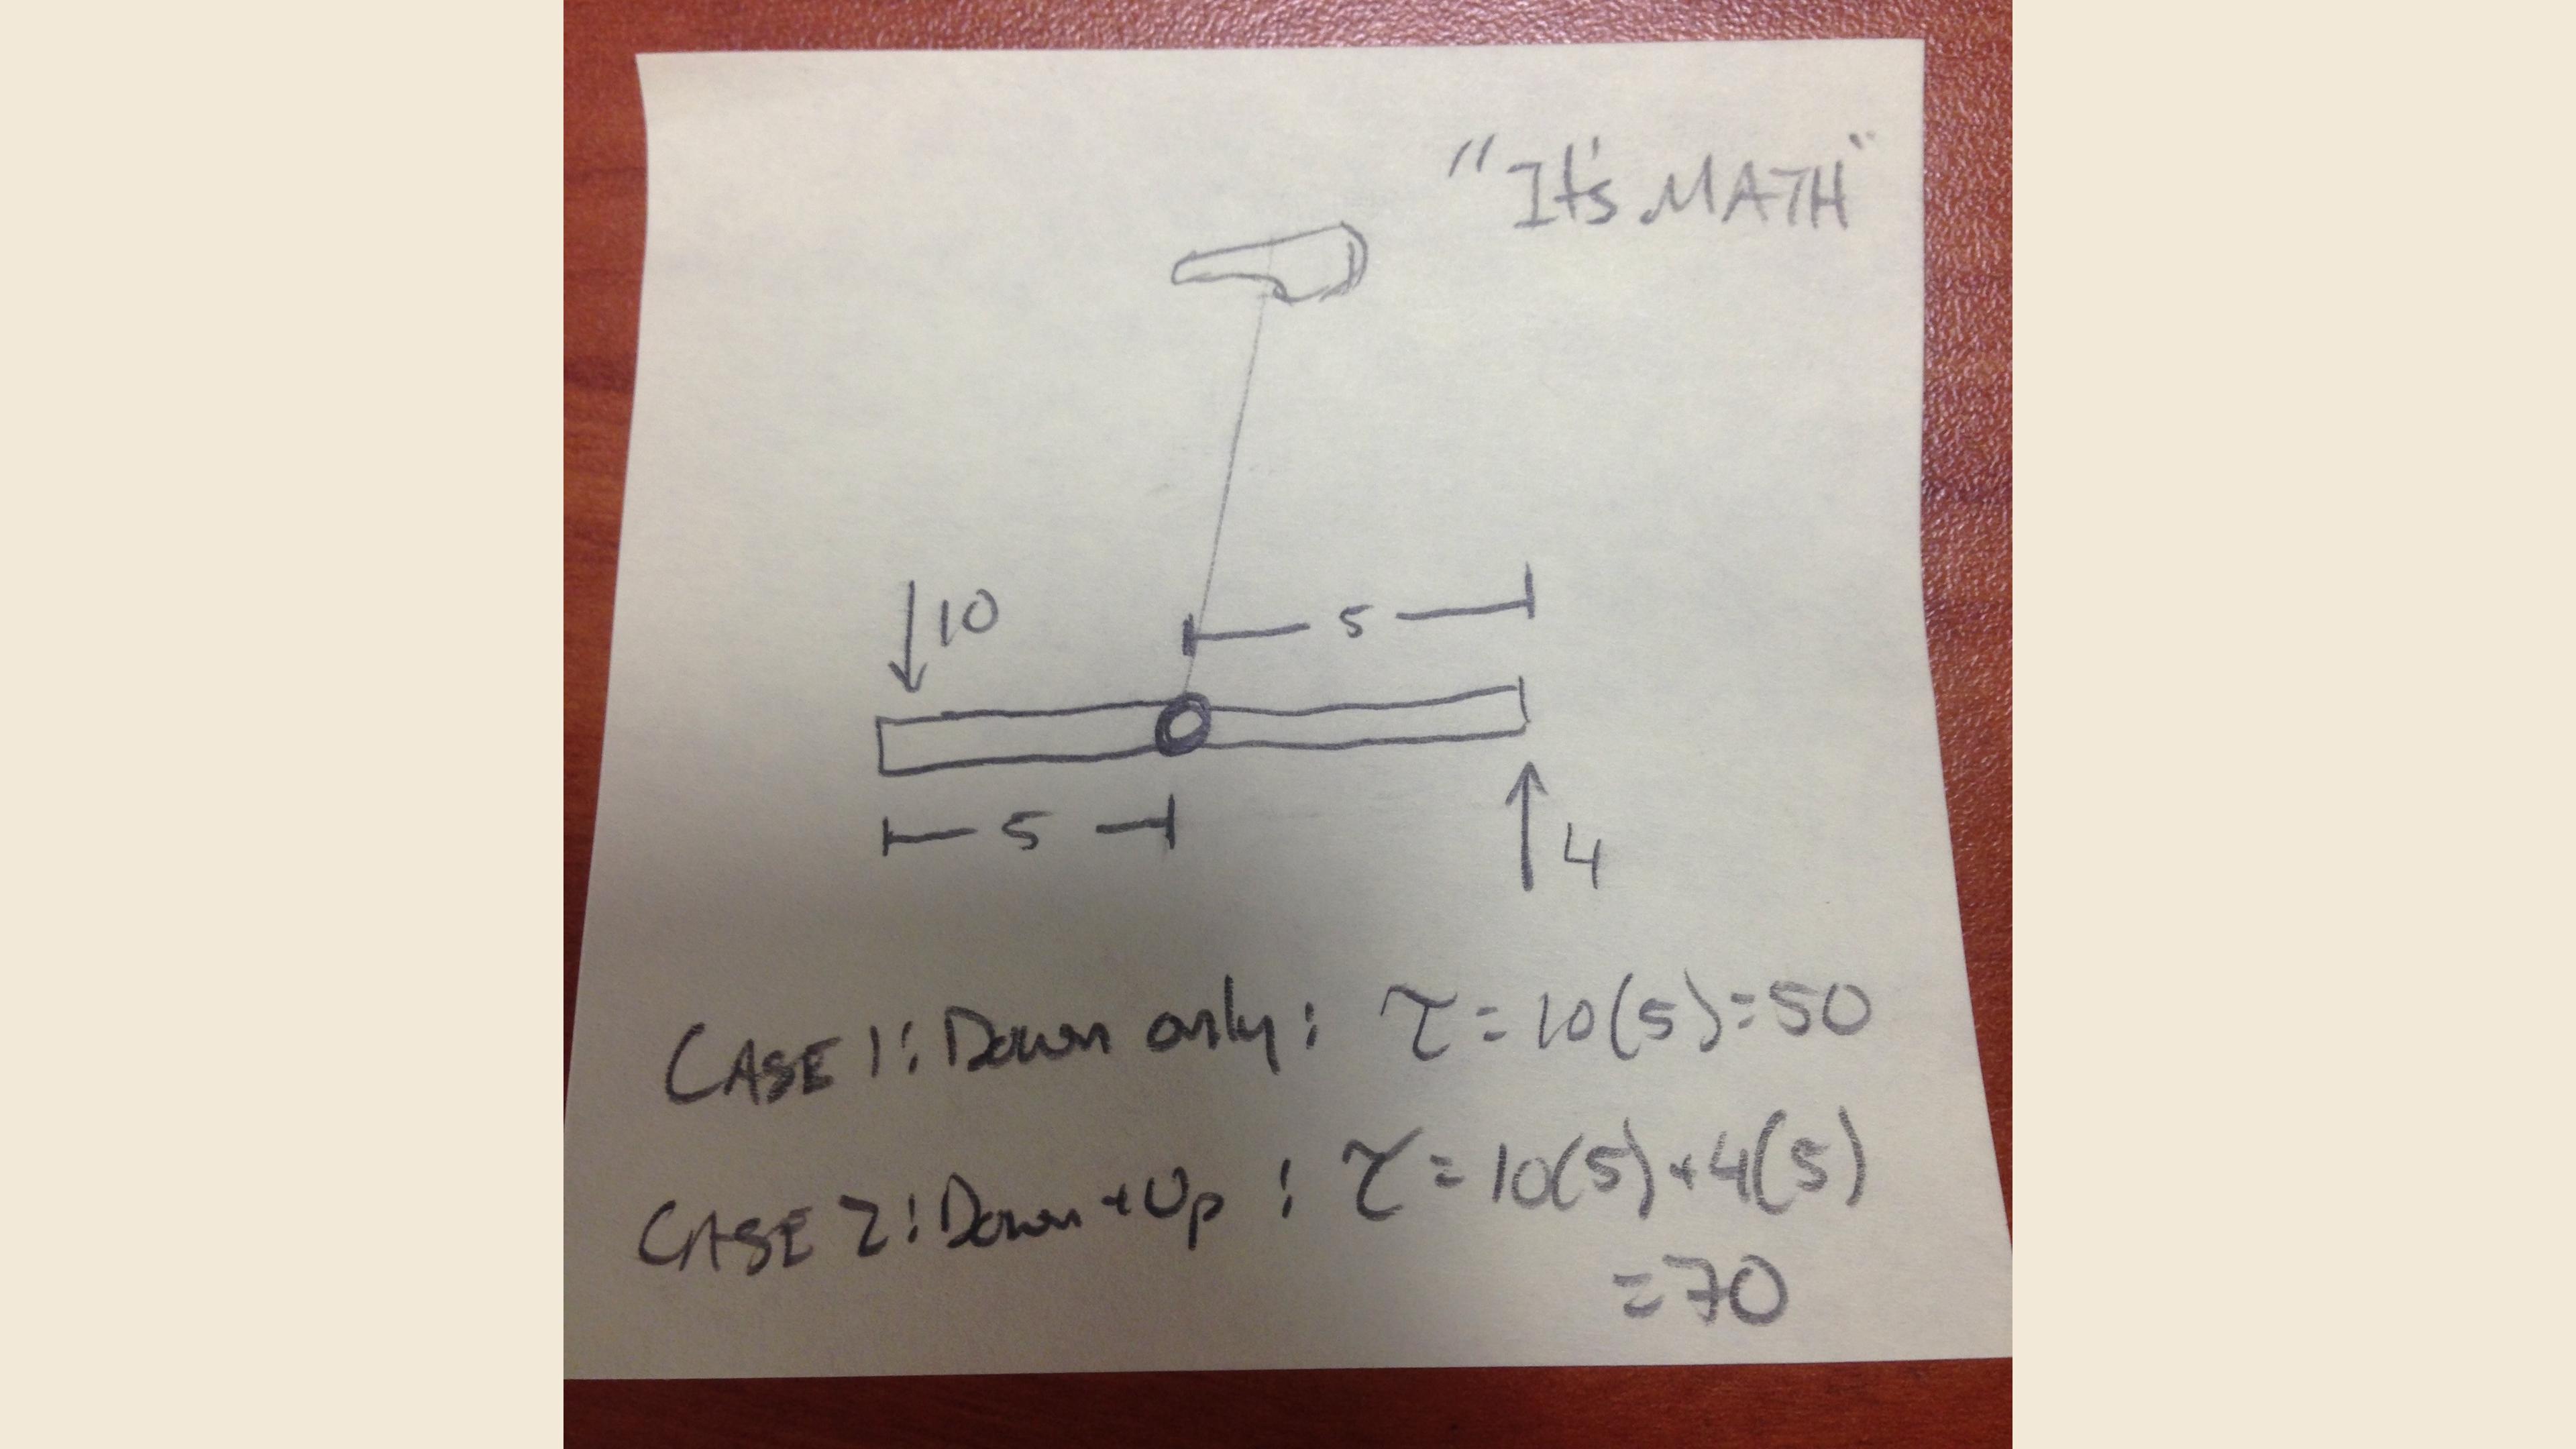 "It's MATH"
10
5
5
4
CASE 1: Down only: τ = 10(5) = 50
CASE 2: Down + Up : τ = 10(5) + 4(5)
= 70